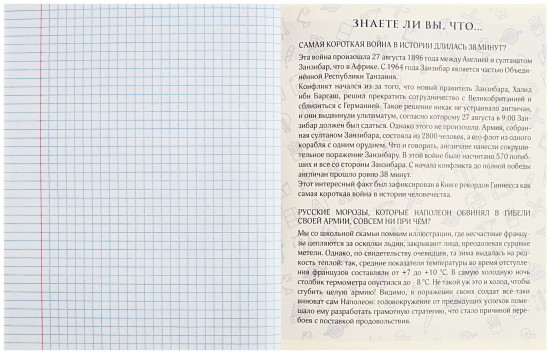 ЗНАЕТЕ ЛИ ВЫ, ЧТО...
САМАЯ КОРОТКАЯ ВОЙНА В ИСТОРИИ ДЛИЛАСЬ 38 МИНУТ?
Эта война произошла 27 августа 1896 года между Англией и султанатом
Занзибар, что в Африке. С 1964 года Занзибар является частью Объеди-
нённой Республики Танзания.
Конфликт начался из-за того, что новый правитель Занзибара, Халид
ибн Баргаш, решил прекратить сотрудничество с Великобританией и
сблизиться с Германией. Такое решение никак не устраивало англичан,
и они выдвинули ультиматум, согласно которому 27 августа в 9:00 Зан-
зибар должен был сдаться. Однако этого не произошло. Армия, собран-
ная султаном Занзибара, состояла из 2800 человек, а его флот из одного
корабля с одним орудием. Что и говорить, англичане нанесли сокруши-
тельное поражение Занзибару. В этой войне было насчитано 570 погиб-
ших и все со стороны Занзибара. С начала конфликта до полной победы
англичан прошло ровно 38 минут.
Этот интересный факт был зафиксирован в Книге рекордов Гиннесса как
самая короткая война в истории человечества.
РУССКИЕ МОРОЗЫ, КОТОРЫЕ НАПОЛЕОН ОБВИНЯЛ В ГИБЕЛИ
СВОЕЙ АРМИИ, СОВСЕМ НИ ПРИ ЧЕМ?
Мы со школьной скамьи помним иллюстрации, где несчастные францу-
зы цепляются за осколки льдин, закрывают лица, преодолевая суровые
метели. Однако, по свидетельству очевидцев, та зима выдалась на ред-
кость теплой: так, средние показатели температуры во время отступле-
ния французов составляли от +7 до +10 °С. В самую холодную ночь
столбик термометра опустился до - 8 °С. Не такой уж это и холод, чтобы
сгубить целую армию! Видимо, в поражении своих солдат все-таки
виноват сам Наполеон: головокружение от предыдущих успехов поме-
шало ему разработать грамотную стратегию, что стало причиной пере-
боев с поставкой продовольствия.